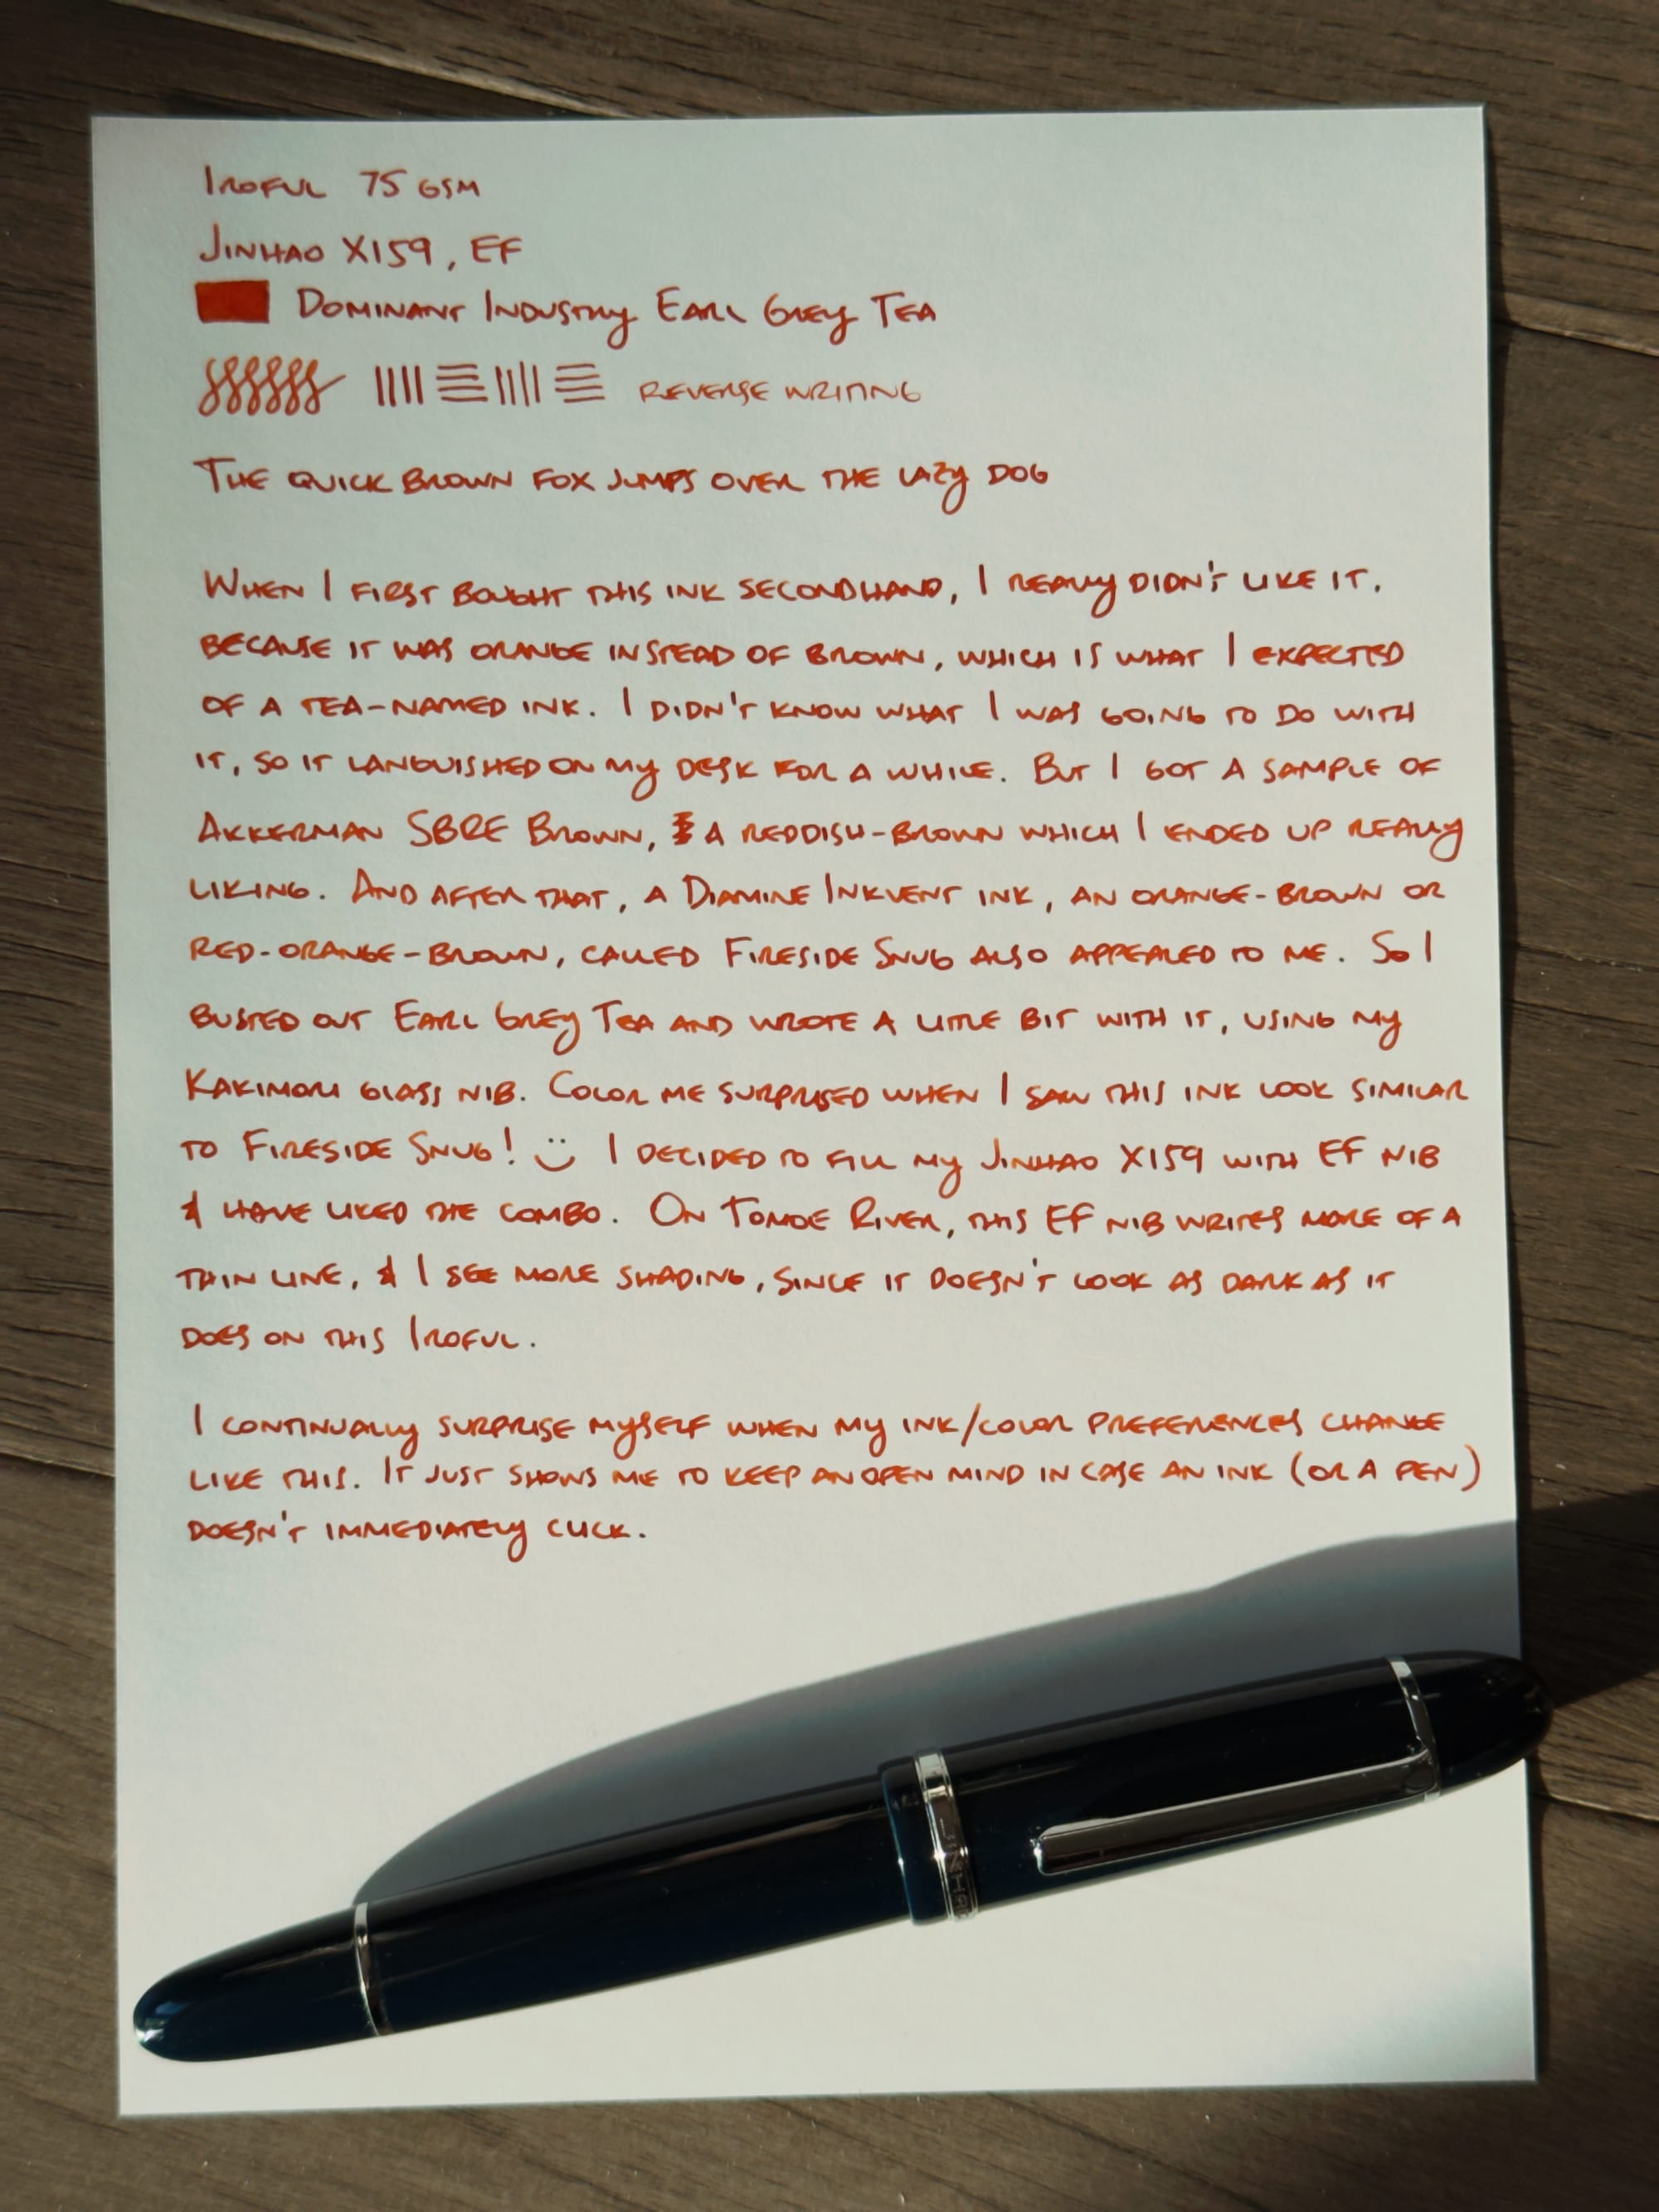 Iroful 75 gsm
Jinhao X159, EF
Dominant Industry Earl Grey Tea
reverse writing
The quick brown fox jumps over the lazy dog
When I first bought this ink secondhand, I really didn't like it,
because it was orange instead of brown, which is what I expected
of a tea-named ink. I didn't know what I was going to do with
it, so it languished on my desk for a while. But I got a sample of
Akkerman SBRE Brown, a reddish-brown which I ended up really
liking. And after that, a Diamine Inkvent ink, an orange-brown or
red-orange-brown, called Fireside Snug also appealed to me. So I
busted out Earl Grey Tea and wrote a little bit with it, using my
Kakimori glass nib. Color me surprised when I saw this ink look similar
to Fireside Snug! :) I decided to fill my Jinhao X159 with EF nib
& have liked the combo. On Tomoe River, this EF nib writes more of a
thin line, & I see more shading, since it doesn't look as dark as it
does on this Iroful.
I continually surprise myself when my ink/color preferences change
like this. It just shows me to keep an open mind in case an ink (or a pen)
doesn't immediately click.
JINHAO